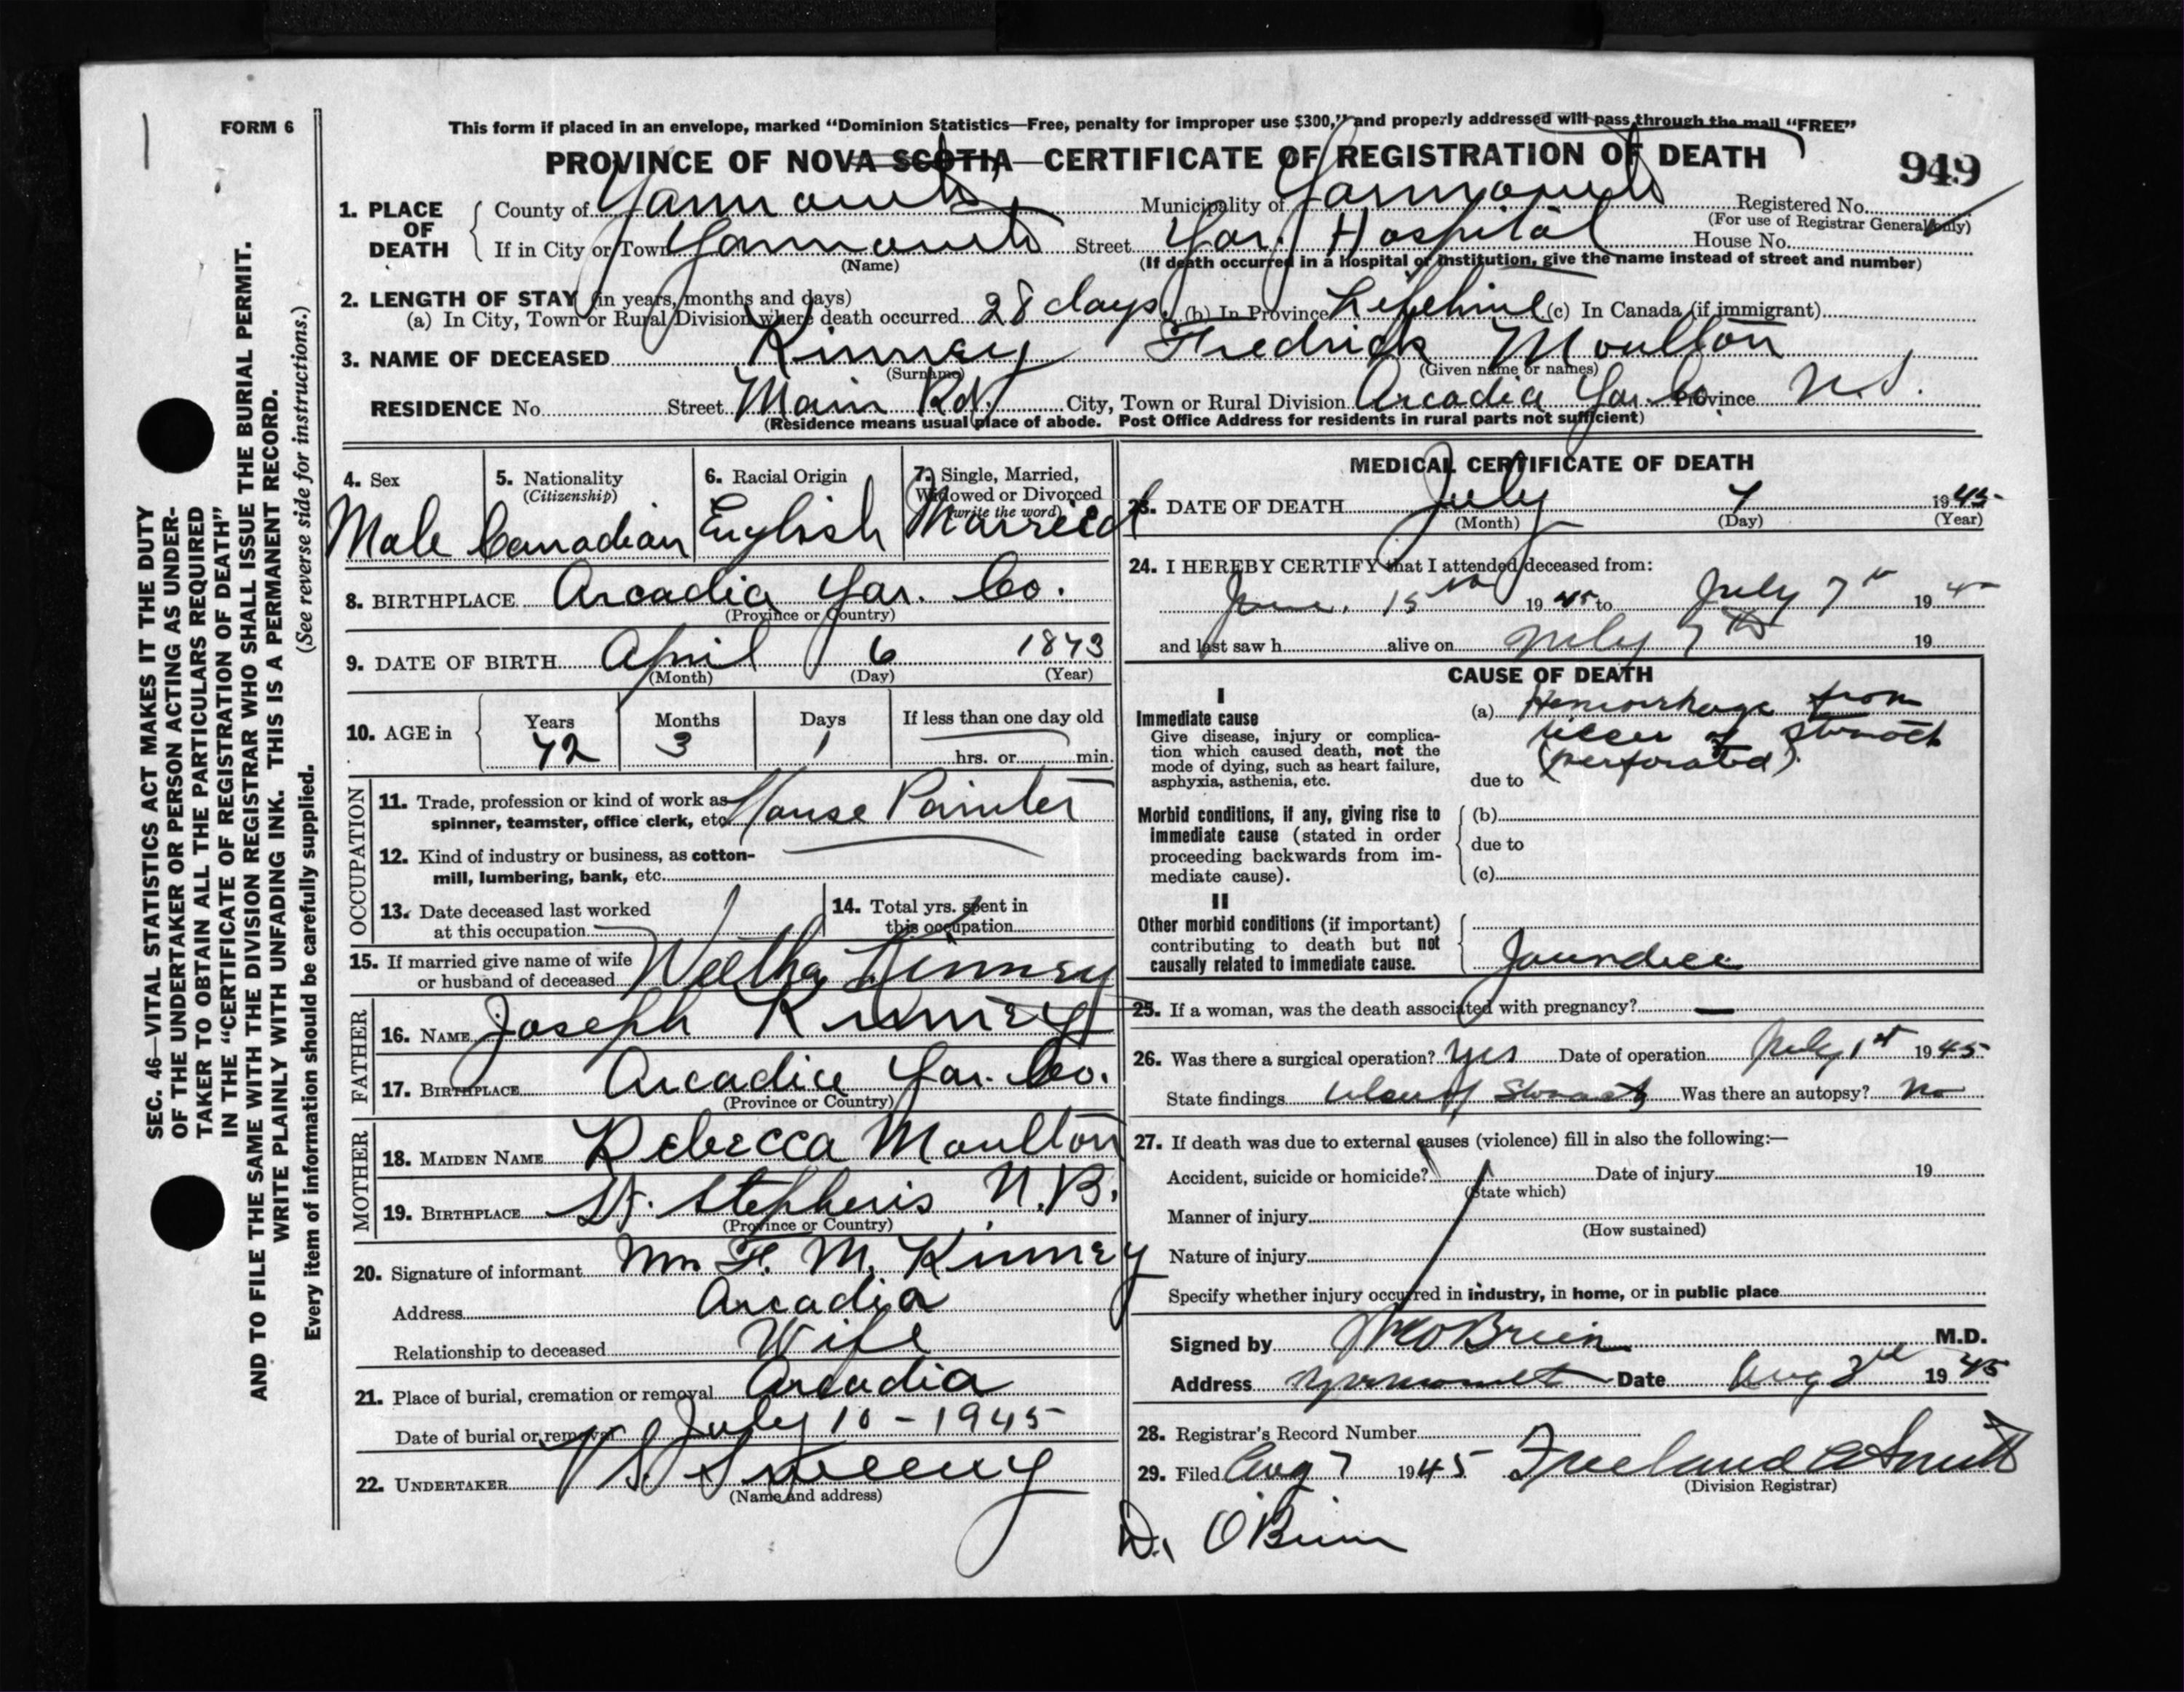 FORM 6
This form if placed in an envelope, marked “Dominion Statistics—Free, penalty for improper use $300,” and properly addressed will pass through the mail “FREE”
PROVINCE OF NOVA SCOTIA—CERTIFICATE OF REGISTRATION OF DEATH
949
1. PLACE OF DEATH
County of Yarmouth Municipality of Yarmouth Registered No.
(For use of Registrar General only)
If in City or Town Yarmouth Street Yar. Hospital House No.
(Name) (If death occurred in a hospital or institution, give the name instead of street and number)
2. LENGTH OF STAY (in years, months and days)
(a) In City, Town or Rural Division where death occurred 28 days (b) In Province Lifetime (c) In Canada (if immigrant)
3. NAME OF DECEASED Kinney Fredrick Moulton
(Surname) (Given name or names)
RESIDENCE No. Street Main Rd. City, Town or Rural Division Arcadia Yar. Co. Province N.S.
(Residence means usual place of abode. Post Office Address for residents in rural parts not sufficient)
4. Sex 5. Nationality 6. Racial Origin 7. Single, Married,
(Citizenship) Widowed or Divorced
(write the word)
Male Canadian English Married
8. BIRTHPLACE Arcadia Yar. Co.
(Province or Country)
9. DATE OF BIRTH April 6 1873
(Month) (Day) (Year)
10. AGE in Years Months Days If less than one day old
72 3 1 hrs. or min.
OCCUPATION
11. Trade, profession or kind of work as House Painter
spinner, teamster, office clerk, etc.
12. Kind of industry or business, as cotton-
mill, lumbering, bank, etc.
13. Date deceased last worked 14. Total yrs. spent in
at this occupation this occupation
15. If married give name of wife
or husband of deceased Kinney
FATHER
16. NAME Joseph Kinney
17. BIRTHPLACE Arcadia Yar. Co.
(Province or Country)
MOTHER
18. MAIDEN NAME Rebecca Moulton
19. BIRTHPLACE St. Stephens N.B.
(Province or Country)
20. Signature of informant Mrs F. M. Kinney
Address Arcadia
Relationship to deceased Wife
21. Place of burial, cremation or removal Arcadia
Date of burial or removal July 10 - 1945
22. UNDERTAKER V S Sweeny
(Name and address)
MEDICAL CERTIFICATE OF DEATH
23. DATE OF DEATH July 7 1945
(Month) (Day) (Year)
24. I HEREBY CERTIFY that I attended deceased from:
June 15th 1945 to July 7th 19 45
and last saw h alive on July 7th 19
CAUSE OF DEATH
I
Immediate cause
Give disease, injury or complica-
tion which caused death, not the
mode of dying, such as heart failure,
asphyxia, asthenia, etc.
(a) Hemorrhage from
ulcer of stomach
(perforated).
due to
Morbid conditions, if any, giving rise to
immediate cause (stated in order
proceeding backwards from im-
mediate cause).
(b)
due to
(c)
II
Other morbid conditions (if important)
contributing to death but not
causally related to immediate cause.
Jaundice
25. If a woman, was the death associated with pregnancy? —
26. Was there a surgical operation? Yes Date of operation July 1st 1945
State findings ulcer of stomach Was there an autopsy? No
27. If death was due to external causes (violence) fill in also the following:—
Accident, suicide or homicide? Date of injury 19
(State which)
Manner of injury
(How sustained)
Nature of injury
Specify whether injury occurred in industry, in home, or in public place
Signed by O'Brien M.D.
Address Yarmouth Date Aug 2nd 1945
28. Registrar's Record Number
29. Filed Aug 7 1945 Freeland A Smith
(Division Registrar)
Dr. O'Brien
SEC. 46—VITAL STATISTICS ACT MAKES IT THE DUTY
OF THE UNDERTAKER OR PERSON ACTING AS UNDER-
TAKER TO OBTAIN ALL THE PARTICULARS REQUIRED
IN THE “CERTIFICATE OF REGISTRATION OF DEATH”
AND TO FILE THE SAME WITH THE DIVISION REGISTRAR WHO SHALL ISSUE THE BURIAL PERMIT.
WRITE PLAINLY WITH UNFADING INK. THIS IS A PERMANENT RECORD.
Every item of information should be carefully supplied. (See reverse side for instructions.)